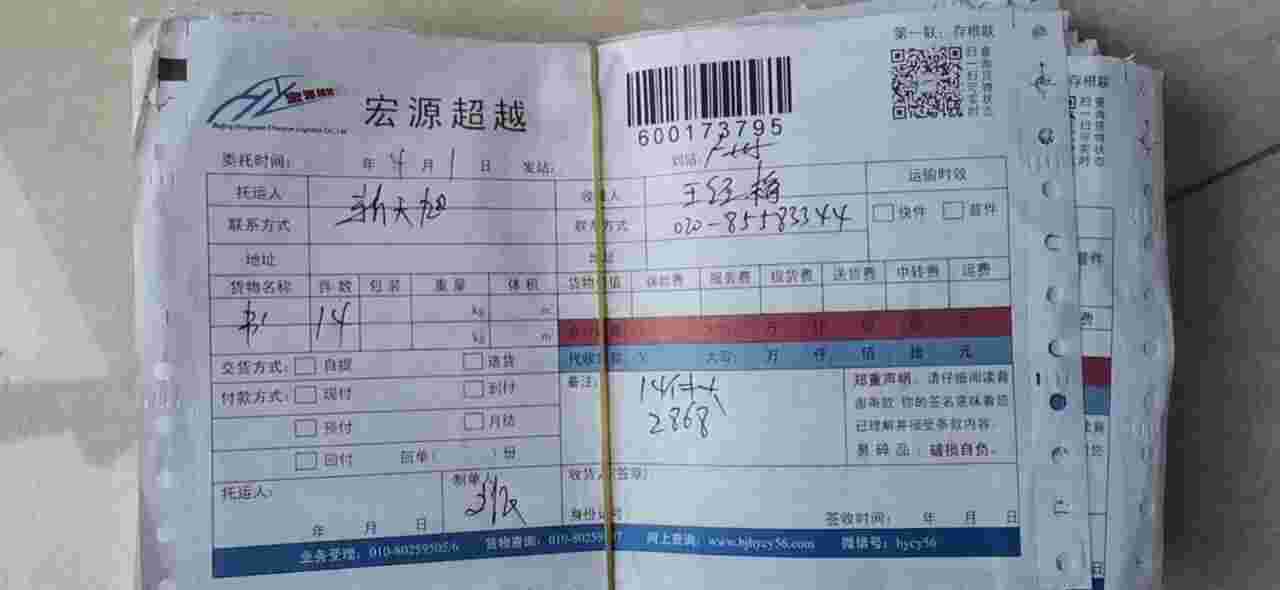 第一联：存根联
宏源超越
600173795
扫一扫 查询货物实时状态
委托时间： 年 4 月 1 日 发站： 到站：广州
托运人 新天旭 收货人 王经梅 运输时效
联系方式 联系方式 020-85583344 快件 普件
地址 地址
货物名称 件数 包装 重量 体积 货物价值 保险费 报关费 提货费 送货费 中转费 运费
书 14 kg m
kg m
万 仟 佰 拾 元
代收货款 大写： 万 仟 佰 拾 元
交货方式： 自提 送货
付款方式： 现付 到付
预付 月结
回付 回单（ ）份
备注： 14件
2868
郑重声明：请仔细阅读背
面条款 你的签名意味着您
已理解并接受条款内容。
易碎品：破损自负。
托运人： 制单人 收货人（签章）
年 月 日 身份证号： 签收时间： 年 月 日
业务受理：010-80259505/6 货物查询：010-80259 7 网上查询：www.bjhycy56.com 微信号：hycy56
存根联
普件